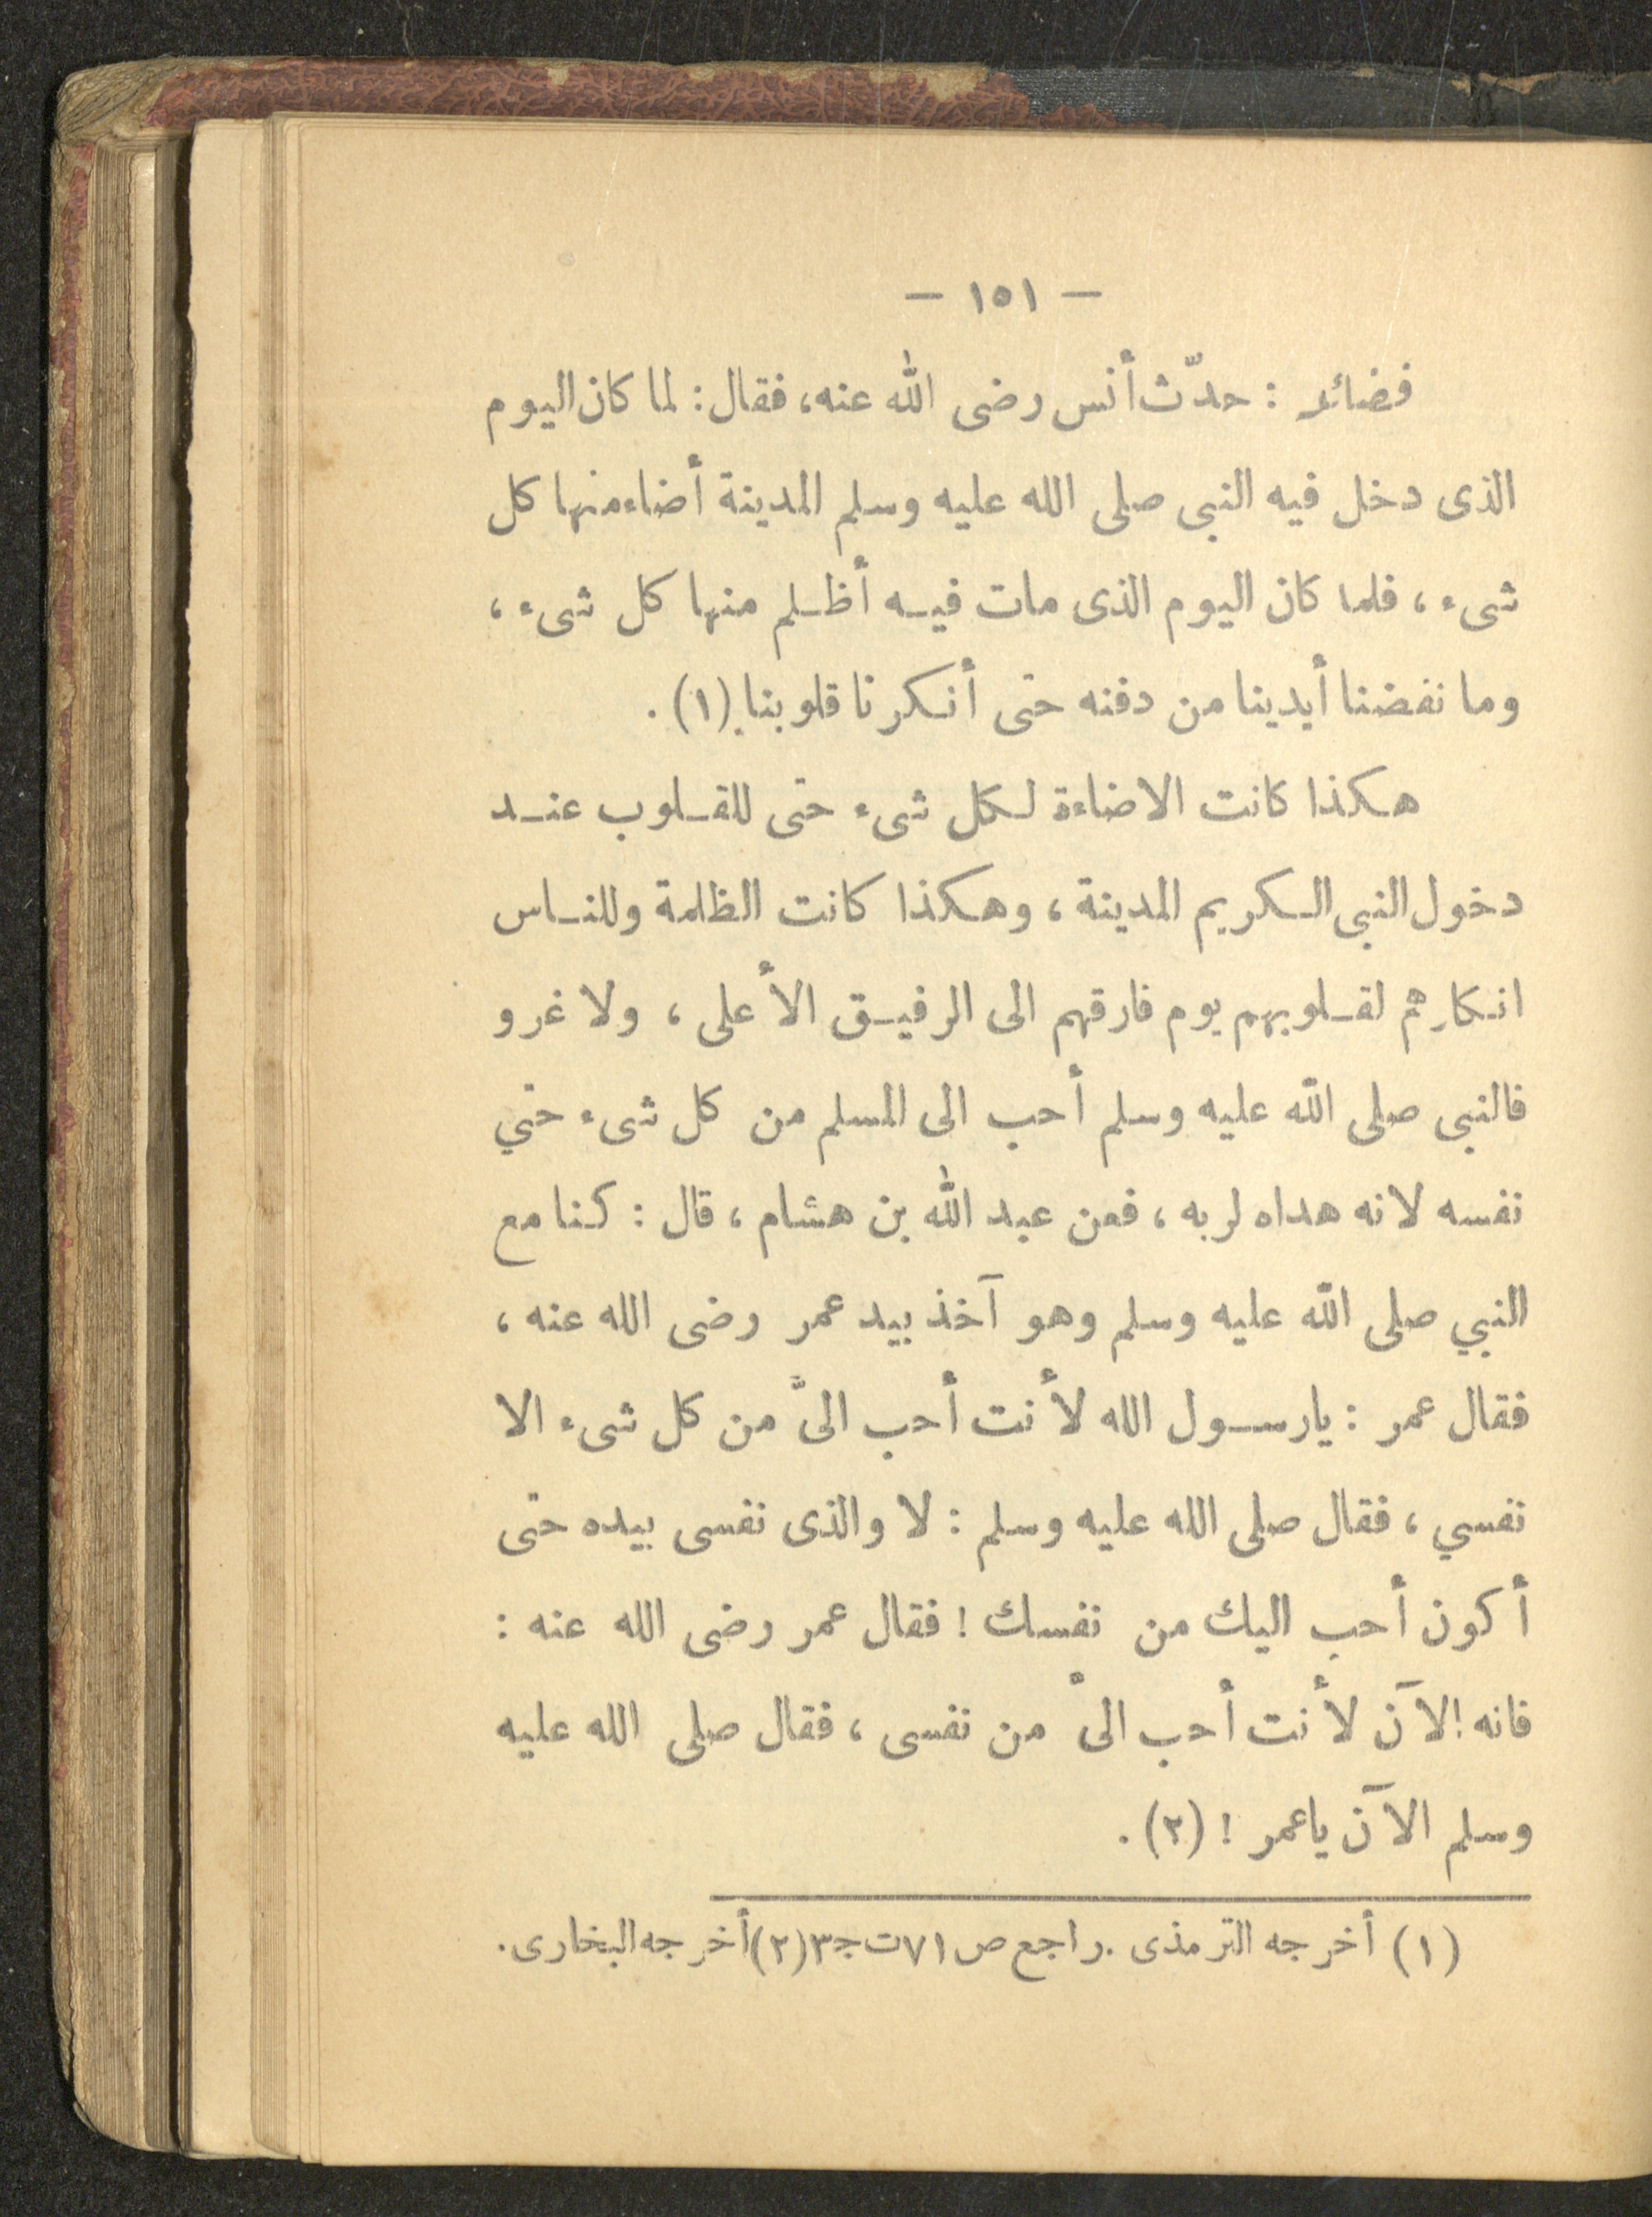 — ١٥١ —
فضائله : حدّث أنس رضى الله عنه، فقال : لما كان اليوم
الذى دخل فيه النبى صلى الله عليه وسلم المدينة أضاء منها كل
شىء ، فلما كان اليوم الذى مات فيـه أظـلم منها كل شىء ،
وما نفضنا أيدينا من دفنه حتى أنـكرنا قلوبنا (١) .
هـكذا كانت الاضاءة لـكل شىء حتى للقـلوب عنـد
دخول النبى الـكريم المدينة ، وهـكذا كانت الظلمة وللنـاس
انـكارهم لقـلوبهم يوم فارقهم الى الرفيـق الأعلى ، ولا غرو
فالنبى صلى الله عليه وسلم أحب الى المسلم من كل شىء حتي
نفسه لانه هداه لربه ، فعن عبد الله بن هشام ، قال : كنا مع
النبي صلى الله عليه وسلم وهو آخذ بيد عمر رضى الله عنه ،
فقال عمر : يارسـول الله لأنت أحب الىَّ من كل شىء الا
نفسي ، فقال صلى الله عليه وسلم : لا والذى نفسى بيده حتى
أكون أحب اليك من نفسك ! فقال عمر رضى الله عنه :
فانه الآن لأنت أحب الىَّ من نفسى ، فقال صلى الله عليه
وسلم الآن ياعمر ! (٢) .
(١) أخرجه الترمذى . راجع ص ٧١ ت ج٣ (٢) أخرجه البخارى .